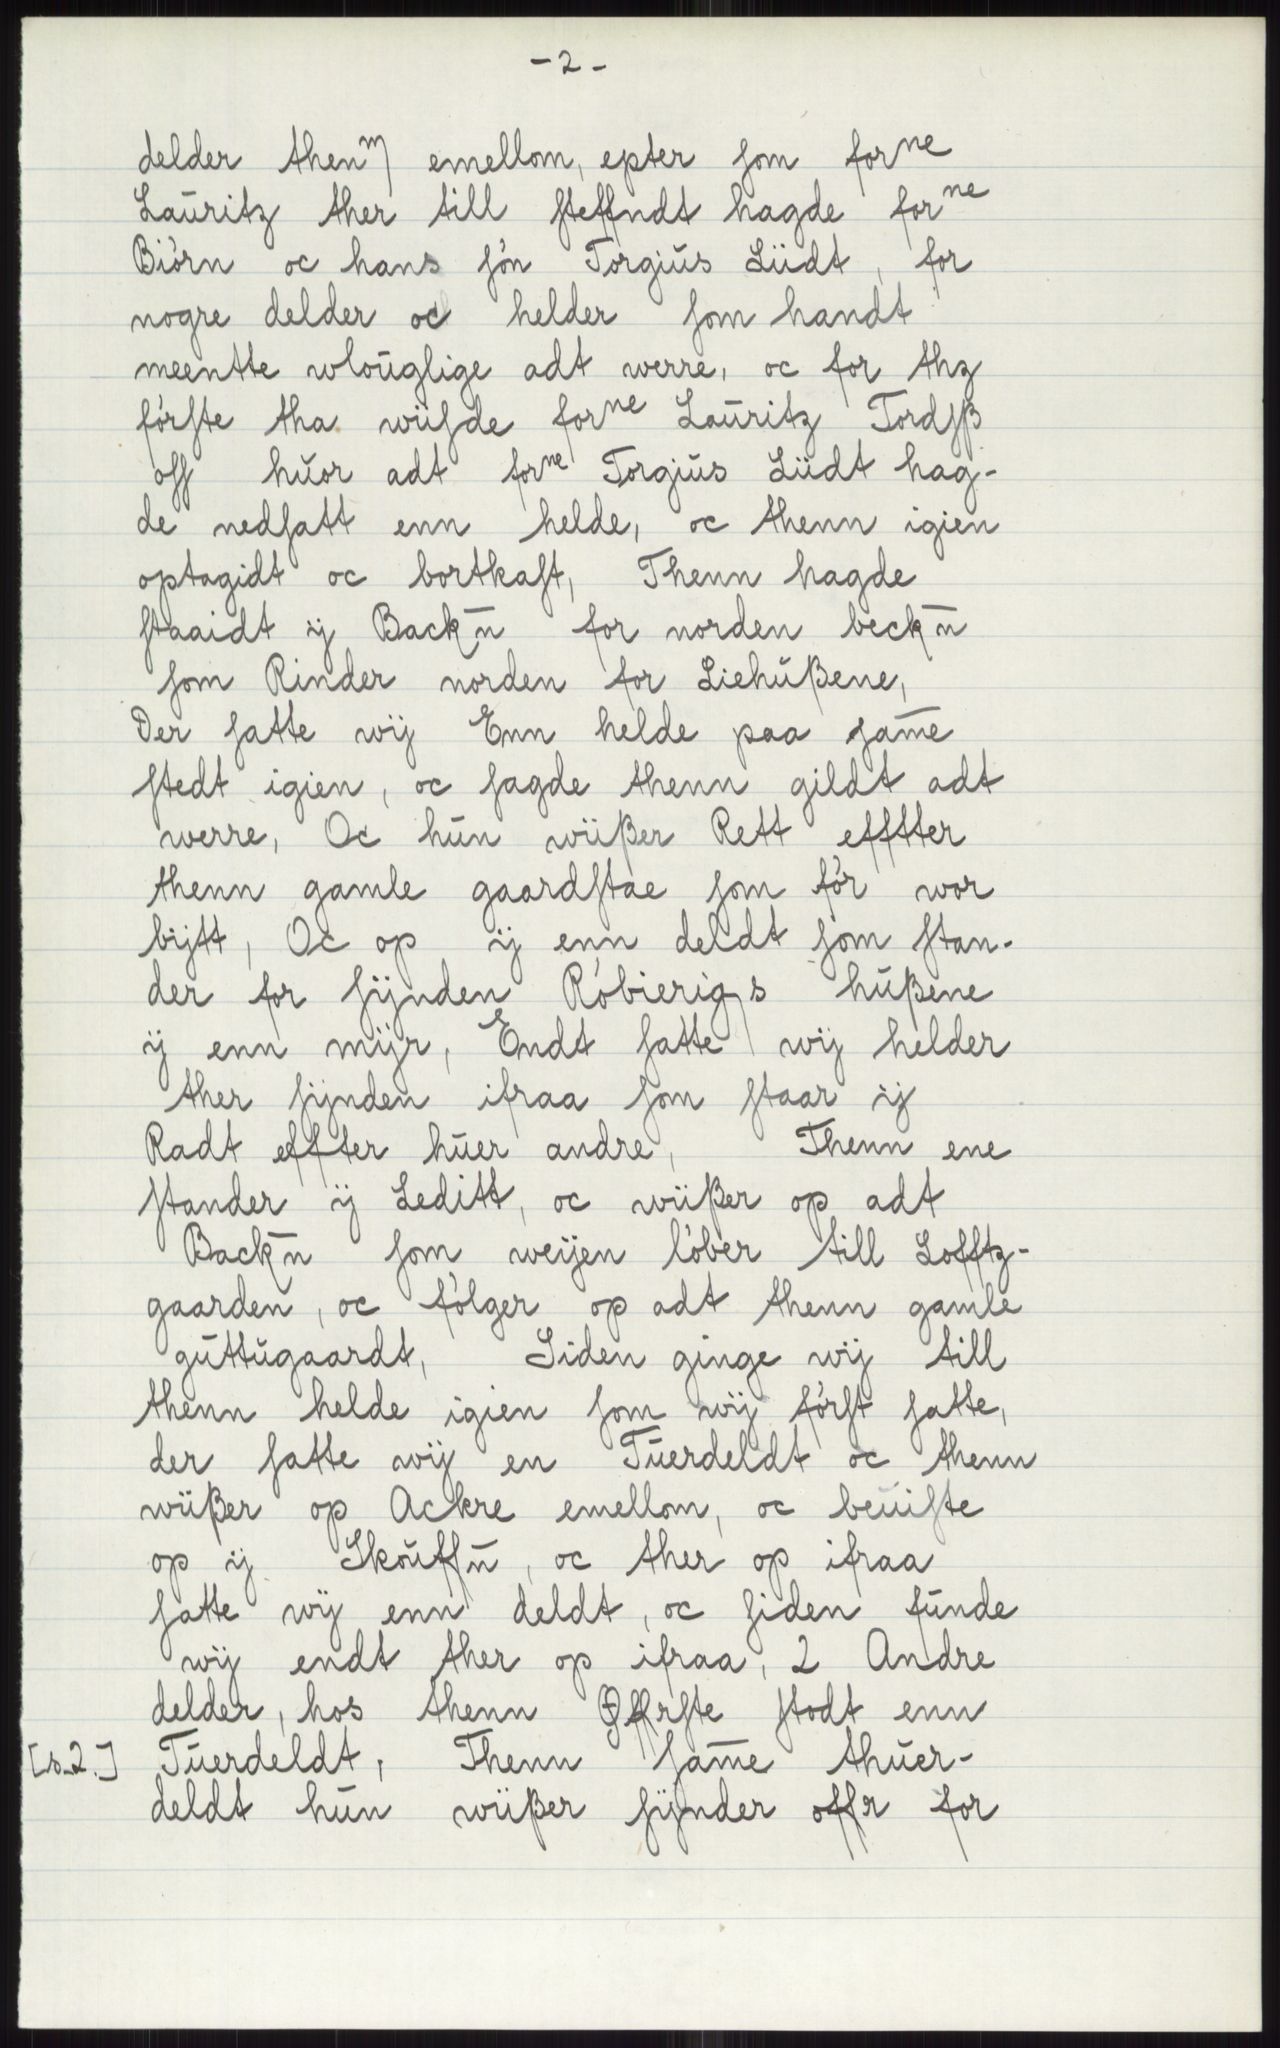 - 2 -
delder thenᵐ emellom, epter som forⁿᵉ
Laŭritz ther till steffndt hagde forⁿᵉ
Biórn oc hans són Torgiŭs Liidt, for
nogre delder oc helder som handt
meentte wloŭglige adt werre, oc for thz
fórste tha wiisde forⁿᵉ Laŭritz Tordsß
oss hŭor adt forⁿᵉ Torgiŭs Liidt hag-
de nedsatt enn helde, oc thenn igien
optagidt oc bortkast, Thenn hagde
staaidt ij Backn̄ for norden beckn̄
som Rinder norden for Liehŭßene,
Der satte wij Enn helde paa sam̄e
stedt igien, oc sagde thenn gildt adt
werre, Oc hŭn wiißer Rett efftter
thenn gamle gaardstae som fór wor
bijtt, Oc op ij enn deldt som stan-
der for sijnden Róbierigs hŭßene
ij enn mijr, Endt satte wij helder
ther sijnden ifraa som staar ij
Radt effter hŭer andre, Thenn ene
stander ij Leditt, oc wiißer op adt
Backn̄ som weijen lóber till Lofftz-
gaarden, oc fólger op adt thenn gamle
gŭttŭgaardt, Siden ginge wij till
thenn helde igien som wij fórst satte,
der satte wij en Tŭerdeldt oc thenn
wiißer op Ackre emellom, oc beŭiste
op ij Skoŭffn̄, oc ther op ifraa
satte wij enn deldt, oc siden fŭnde
wij endt ther op ifraa, 2 Andre
delder, hos thenn Øffrste stodt enn
[s.2.] Tŭerdeldt, Thenn sam̄e thŭer-
deldt hŭn wiißer sijnder offr for